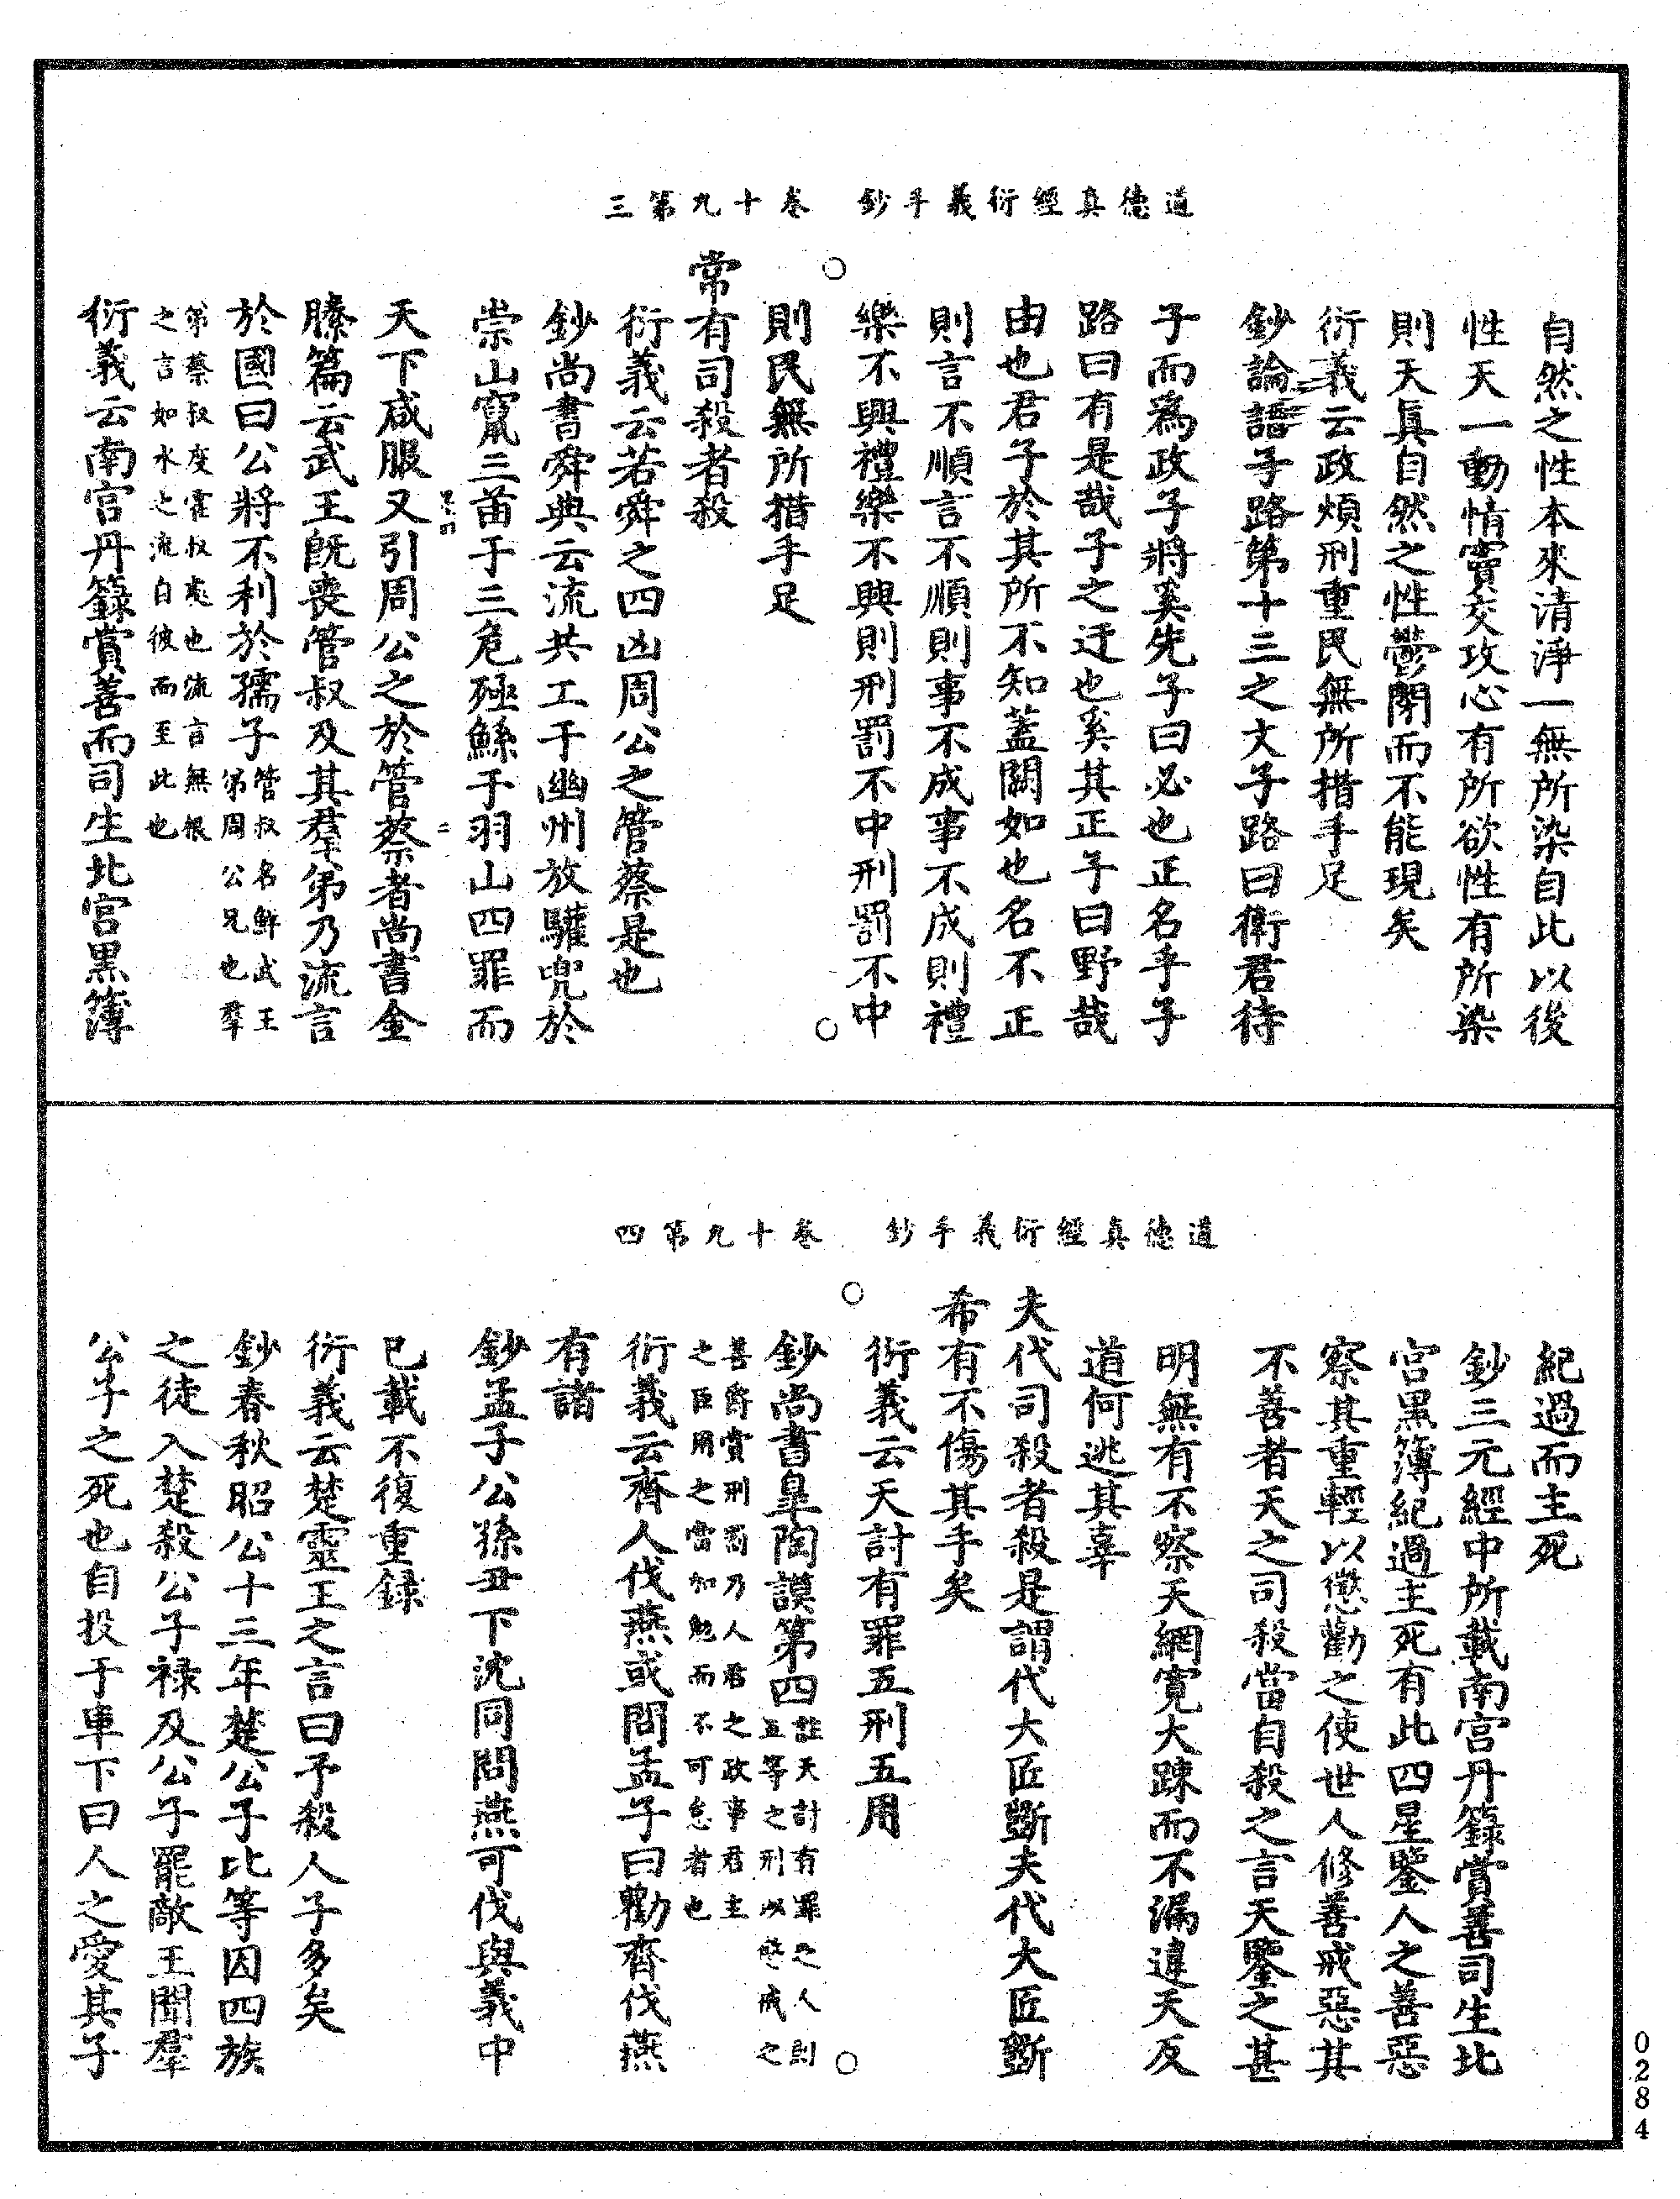 道德真經衍義手鈔　卷十九第三
自然之性本來清淨一無所染自此以後
性天一動情竇交攻心有所欲性有所染
則天真自然之性鬱閉而不能現矣
衍義云政煩刑重民無所措手足
鈔論語子路第十三之文子路曰衛君待
子而為政子將奚先子曰必也正名乎子
路曰有是哉子之迂也奚其正子曰野哉
由也君子於其所不知蓋闕如也名不正
則言不順言不順則事不成事不成則禮
樂不興禮樂不興則刑罰不中刑罰不中
則民無所措手足
常有司殺者殺
衍義云若舜之四凶周公之管蔡是也
鈔尚書舜典云流共工于幽州放驩兜於
崇山竄三苗于三危殛鯀于羽山四罪而
天下咸服又引周公之於管蔡者尚書金
縢篇云武王既喪管叔及其羣弟乃流言
於國曰公將不利於孺子管叔名鮮武王
弟周公兄也羣
弟蔡叔度霍叔處也流言無根
之言如水之流自彼而至此也
衍義云南宮丹籙賞善而司生北宮黑簿
道德真經衍義手鈔　卷十九第四
紀過而主死
鈔三元經中所載南宮丹籙賞善司生北
宮黑簿紀過主死有此四星鑒人之善惡
察其重輕以懲勸之使世人修善戒惡其
不善者天之司殺當自殺之言天鑒之甚
明無有不察天網寬大踈而不漏違天反
道何逃其辜
夫代司殺者殺是謂代大匠斲夫代大匠斲
希有不傷其手矣
衍義云天討有罪五刑五用
鈔尚書皐陶謨第四註天討有罪之人則
五等之刑以懲戒之
善爵賞刑罰乃人君之政事君主
之臣用之當加勉而不可怠者也
衍義云齊人伐燕或問孟子曰勸齊伐燕
有諸
鈔孟子公孫丑下沈同問燕可伐與義中
已載不復重録
衍義云楚靈王之言曰予殺人子多矣
鈔春秋昭公十三年楚公子比等因四族
之徒入楚殺公子禄及公子罷敵王聞羣
公子之死也自投于車下曰人之愛其子
0284